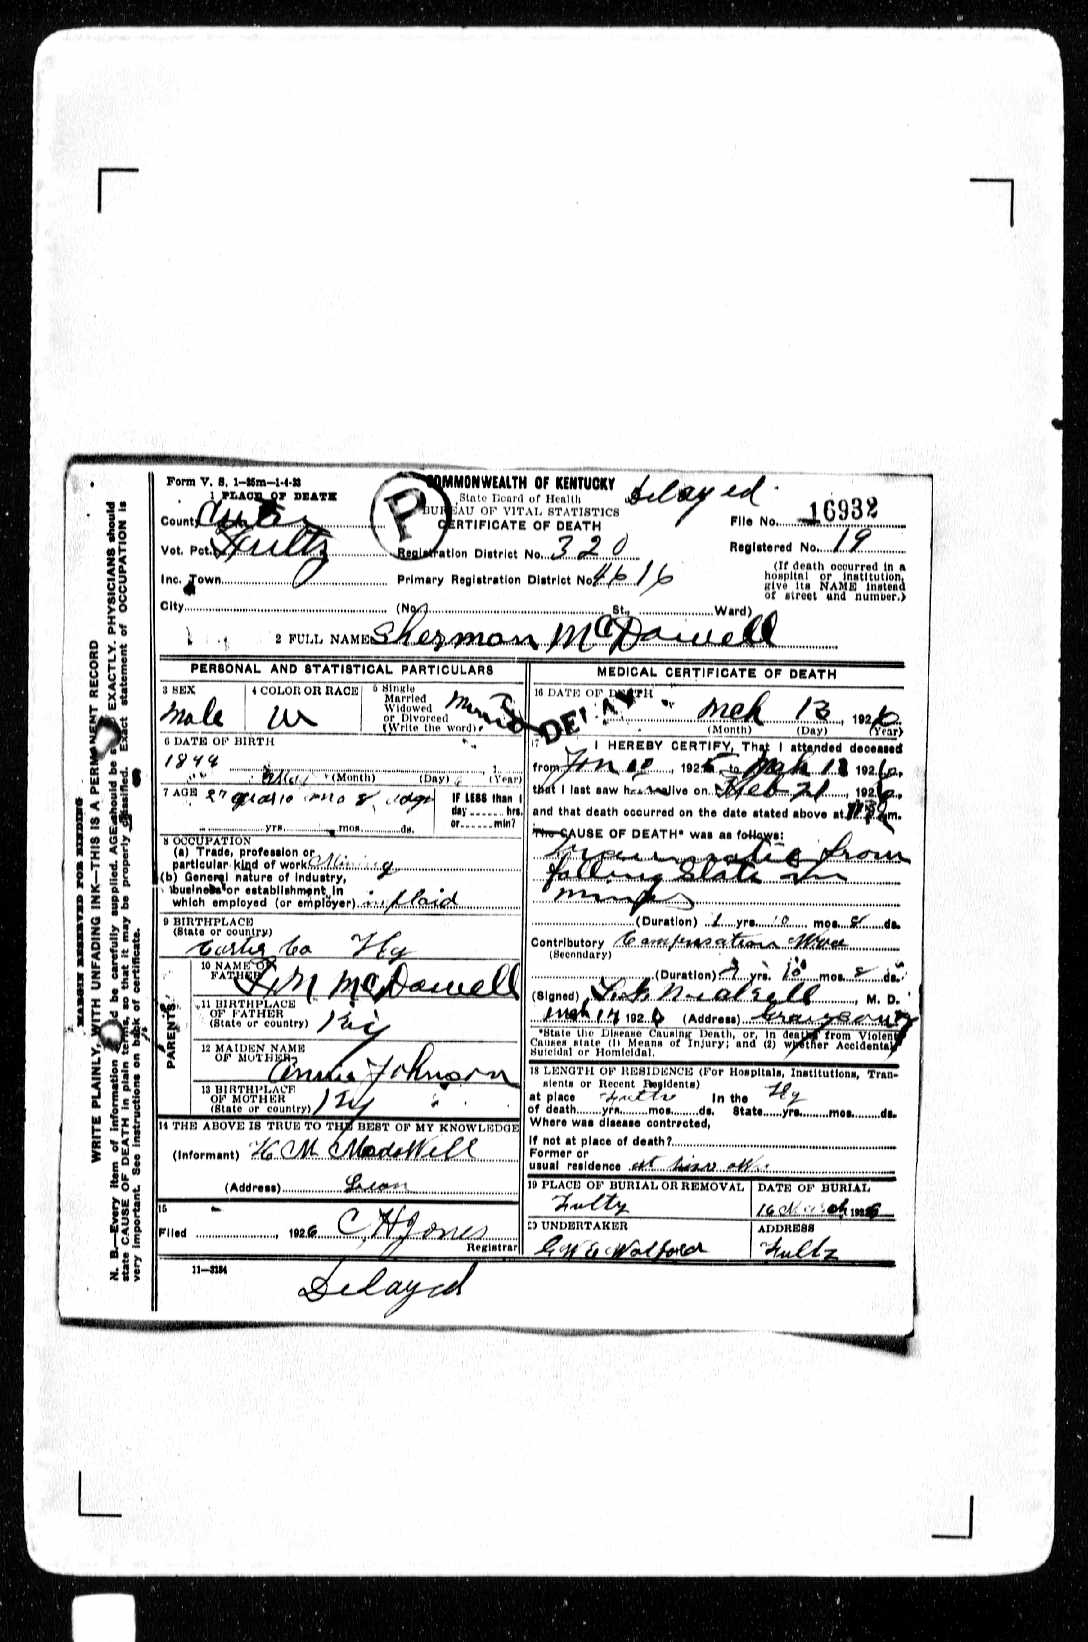 Form V. S. 1-25m-1-4-23
1 PLACE OF DEATH
COMMONWEALTH OF KENTUCKY
State Board of Health
BUREAU OF VITAL STATISTICS
CERTIFICATE OF DEATH
P
Delayed
File No. 16932
County Carter
Vot. Pct. Fultz
Registration District No. 320
Registered No. 19
Inc. Town
Primary Registration District No. 4616
(If death occurred in a hospital or institution, give its NAME instead of street and number.)
City (No. St., Ward)
2 FULL NAME Sherman McDowell
PERSONAL AND STATISTICAL PARTICULARS
3 SEX Male
4 COLOR OR RACE W
5 Single Married Widowed or Divorced (Write the word) Married
6 DATE OF BIRTH
(Month) (Day) (Year)
7 AGE
yrs. mos. ds.
IF LESS than 1 day hrs. or min?
8 OCCUPATION
(a) Trade, profession or particular kind of work Mining
(b) General nature of industry, business or establishment in which employed (or employer)
9 BIRTHPLACE
(State or country)
Carter Co Ky
PARENTS
10 NAME OF FATHER McDowell
11 BIRTHPLACE OF FATHER (State or country) Ky
12 MAIDEN NAME OF MOTHER Annie Johnson
13 BIRTHPLACE OF MOTHER (State or country) Ky
14 THE ABOVE IS TRUE TO THE BEST OF MY KNOWLEDGE
(Informant)
(Address)
15
Filed , 1926 C H Jones
Registrar
11-3184
Delayed
MEDICAL CERTIFICATE OF DEATH
16 DATE OF DEATH
DELAY
Mch 13, 1926
(Month) (Day) (Year)
17 I HEREBY CERTIFY, That I attended deceased
from Jan 10, 1925 to Mch 13 1926.
that I last saw h alive on Feb 21, 1926.
and that death occurred on the date stated above at m.
The CAUSE OF DEATH* was as follows:
Traumatic from
falling Slate in
mines
(Duration) 1 yrs. mos. 8 ds.
Contributory Compensation
(Secondary)
(Duration) yrs. 10 mos. ds.
(Signed) , M. D.
Mch 14 1926 (Address) Grayson Ky
*State the Disease Causing Death, or, in deaths from Violent Causes state (1) Means of Injury; and (2) whether Accidental, Suicidal or Homicidal.
18 LENGTH OF RESIDENCE (For Hospitals, Institutions, Transients or Recent Residents)
at place of death yrs. mos. ds. In the State yrs. mos. ds.
Fultz Ky
Where was disease contracted,
If not at place of death?
Former or usual residence
19 PLACE OF BURIAL OR REMOVAL
Fultz
DATE OF BURIAL
16 March, 1926
20 UNDERTAKER
ADDRESS
Fultz
MARGIN RESERVED FOR BINDING
WRITE PLAINLY, WITH UNFADING INK—THIS IS A PERMANENT RECORD
N. B.—Every item of information should be carefully supplied. AGE should be stated EXACTLY. PHYSICIANS should
state CAUSE OF DEATH in plain terms, so that it may be properly classified. Exact statement of OCCUPATION is
very important. See instructions on back of certificate.